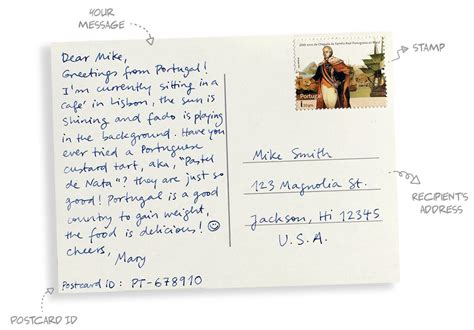 YOUR
MESSAGE
Dear Mike,
Greetings from Portugal!
I'm currently sitting in a
café in Lisbon, the sun is
shining and fado is playing
in the background. Have you
ever tried a Portuguese
custard tart, aka, "Pastel
de Nata"? they are just so
good! Portugal is a good
country to gain weight,
the food is delicious! ☺
cheers,
Mary
Postcard ID: PT-678910
POSTCARD ID
Portugal
STAMP
Mike Smith
123 Magnolia St.
Jackson, Hi 12345
U.S.A.
RECIPIENT'S
ADDRESS